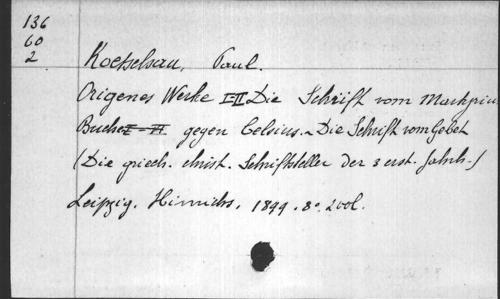 136
60
2
Koetschau, Paul.
Origenes Werke I-II Die Schrift vom Martyrium
Buch I-IV gegen Celsius. - Die Schrift vom Gebet
(Die griech. christ. Schriftsteller der 3 erst. Jahrh.)
Leipzig, Hinrichs, 1899. 8° 2 vol.